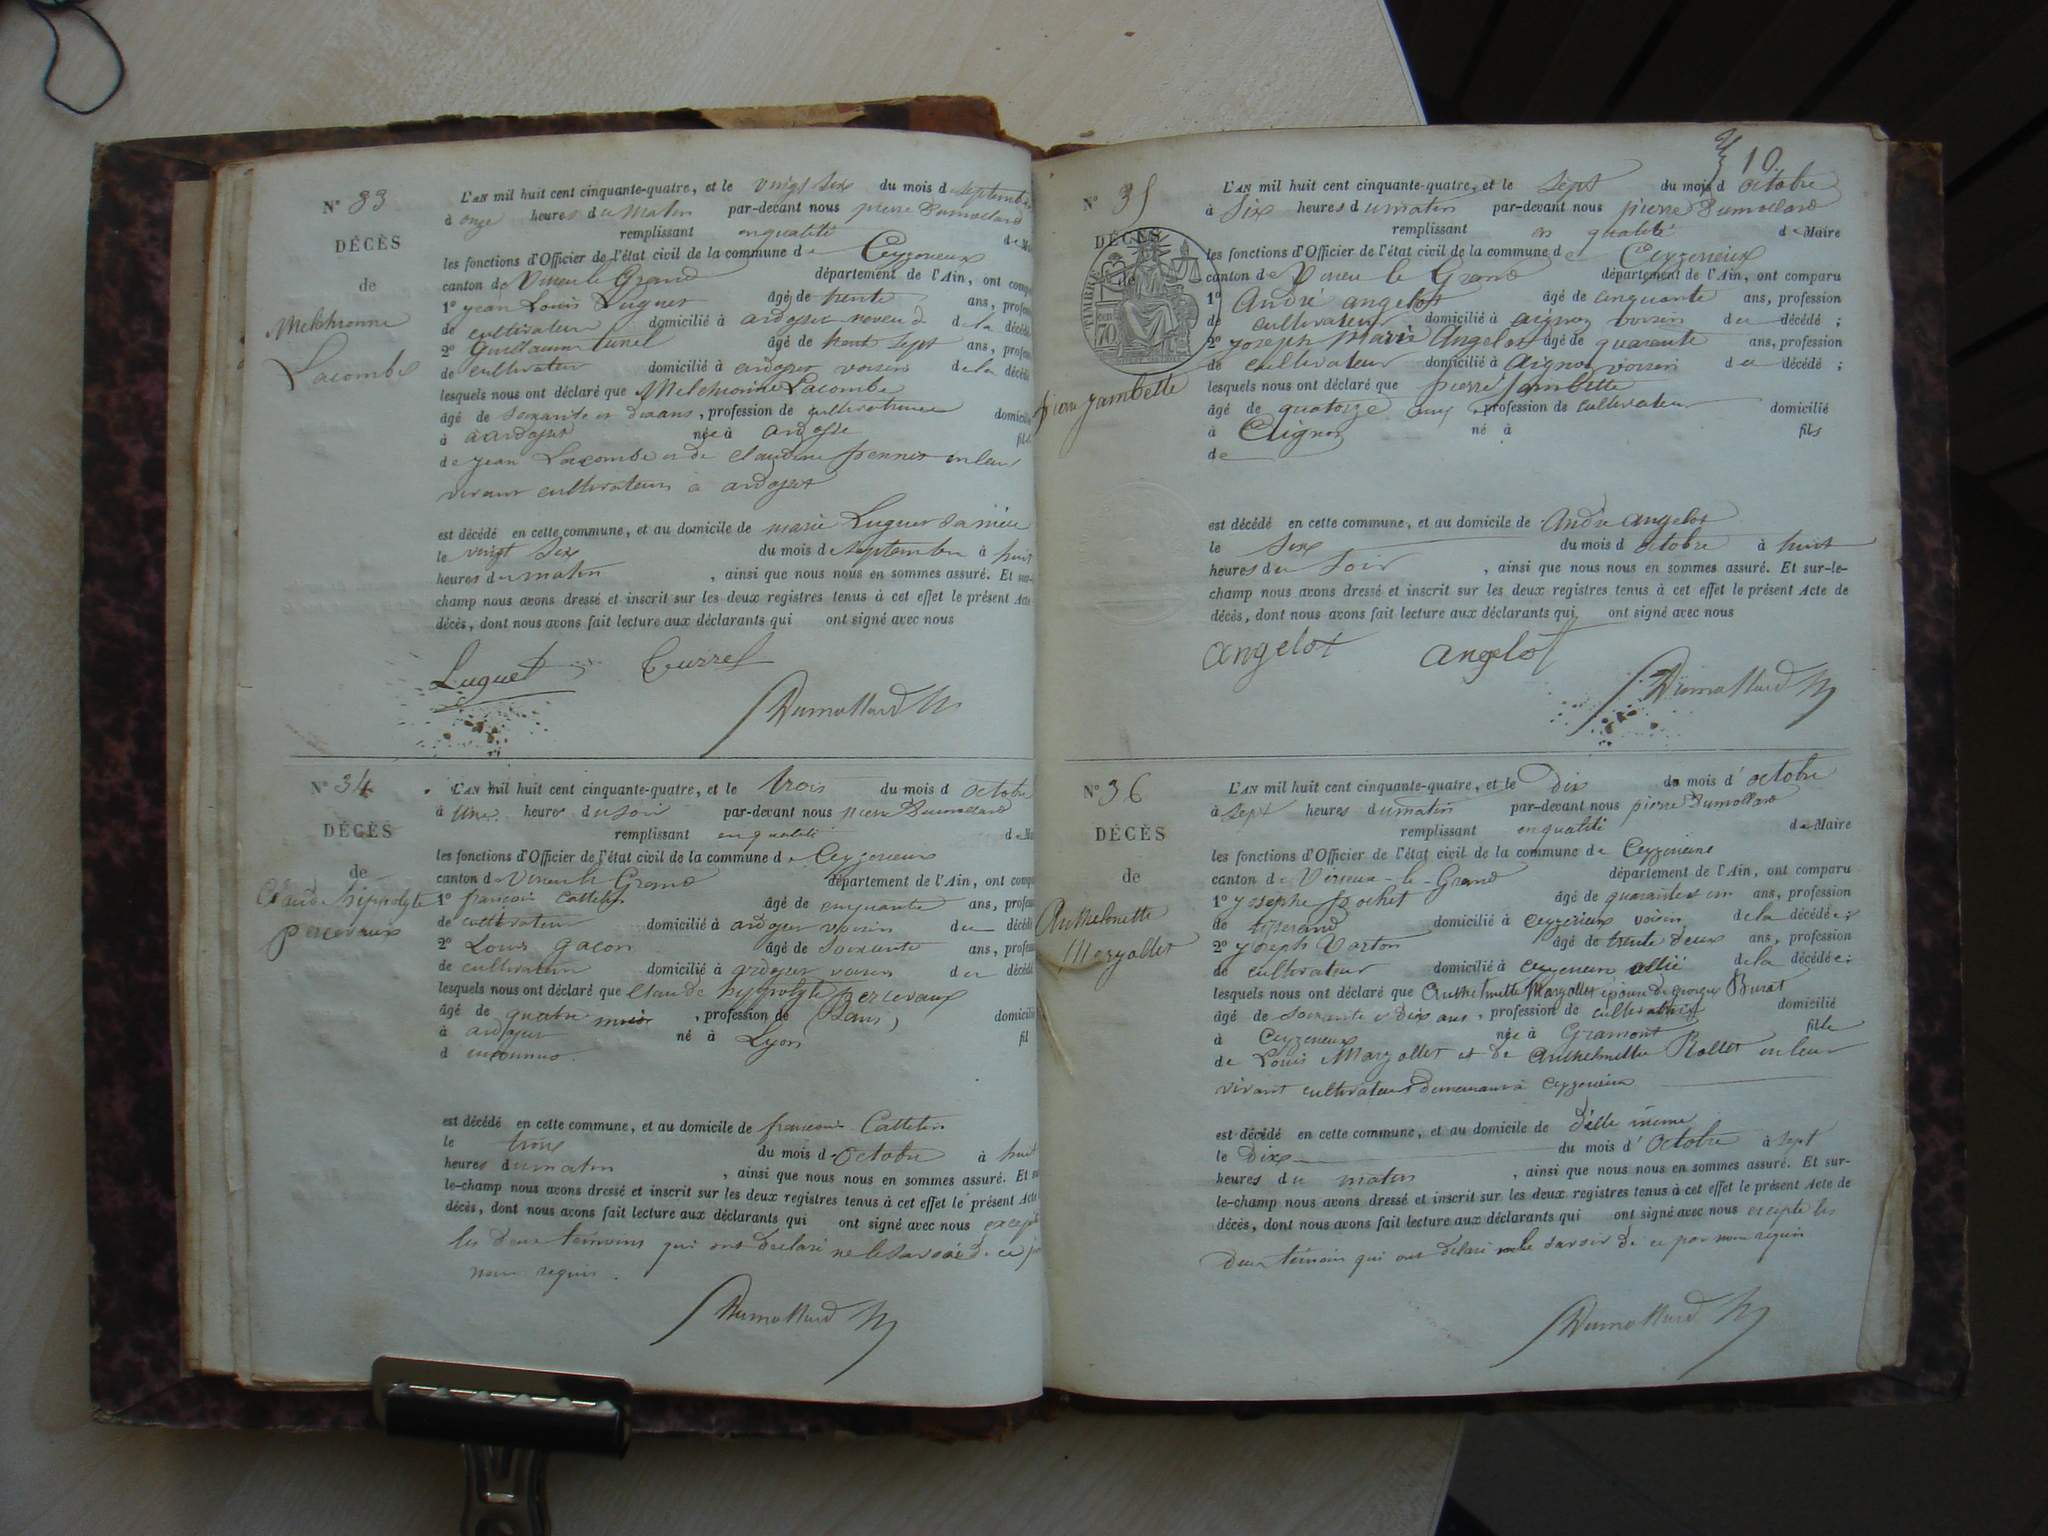 N° 33
DÉCÈS
de
Melchionne
Lacombe
L'AN mil huit cent cinquante-quatre, et le vingt six du mois d septembre
à onze heures du matin par-devant nous pierre Dumollard
remplissant en qualité de
les fonctions d'Officier de l'état civil de la commune de Ceyzerieux
canton de Virieu le Grand département de l'Ain, ont comp
1° jean Louis Luguet âgé de trente ans, profes
de cultivateur domicilié à ardoset neveu de la décédé
2° Guillaume âgé de trent sept ans, profes
de cultivateur domicilié à ardoset voisin de la décédé
lesquels nous ont déclaré que Melchionne Lacombe
âgé de soixante et dix ans, profession de cultivatrice domicilié
à née à fil
de jean Lacombe et de claudine en leur
vivant cultivateurs à ardoset
est décédé en cette commune, et au domicile de marie Luguet sa nièce
le vingt six du mois de septembre à huit
heures du matin , ainsi que nous nous en sommes assuré. Et sur-
champ nous avons dressé et inscrit sur les deux registres tenus à cet effet le présent Acte
décès, dont nous avons fait lecture aux déclarants qui ont signé avec nous
Luguet
Dumollard
N° 34
DÉCÈS
de
Claude hippolyte
percevaux
L'AN mil huit cent cinquante-quatre, et le trois du mois d octobre
à Une heure du soir par-devant nous pierre Dumollard
remplissant en qualité de
les fonctions d'Officier de l'état civil de la commune de Ceyzerieux
canton d Virieu le Grand département de l'Ain, ont comp
1° françois Cattelin âgé de cinquante ans, profes
de cultivateur domicilié à voisin du décédé
2° Louis gacon âgé de soixante ans, profes
de cultivateur domicilié à voisin du décédé
lesquels nous ont déclaré que Claude hippolyte percevaux
âgé de quatre mois , profession de (Sans) domicilié
à né à Lyon fil
d inconnus.
est décédé en cette commune, et au domicile de françois Cattelin
le trois du mois d octobre à huit
heures du matin , ainsi que nous nous en sommes assuré. Et
le-champ nous avons dressé et inscrit sur les deux registres tenus à cet effet le présent Acte
décès, dont nous avons fait lecture aux déclarants qui ont signé avec nous excepté
les deux témoins qui ont déclaré ne le savoir de ce
nous requis.
Dumollard
10.
N° 35
DÉCÈS
de
TIMBRE
70
pierre jambette
L'AN mil huit cent cinquante-quatre, et le sept du mois d octobre
à Six heures du matin par-devant nous pierre Dumollard
remplissant en qualité de Maire
les fonctions d'Officier de l'état civil de la commune de Ceyzerieux
canton de Virieu le Grand département de l'Ain, ont comparu
1° André angelot âgé de cinquante ans, profession
de cultivateur domicilié à aignoz voisin du décédé ;
2° joseph Marie Angelot âgé de quarante ans, profession
de cultivateur domicilié à Aignoz voisin du décédé ;
lesquels nous ont déclaré que pierre Jambette
âgé de quatorze ans profession de cultivateur domicilié
à Aignoz né à fils
de
est décédé en cette commune, et au domicile de André angelot
le Six du mois d octobre à huit
heures du soir , ainsi que nous nous en sommes assuré. Et sur-le-
champ nous avons dressé et inscrit sur les deux registres tenus à cet effet le présent Acte de
décès, dont nous avons fait lecture aux déclarants qui ont signé avec nous
angelot angelot
Dumollard
N° 36
DÉCÈS
de
Anthelmette
Margollet
L'AN mil huit cent cinquante-quatre, et le Dix du mois d' octobre
à sept heures du matin par-devant nous pierre Dumollard
remplissant en qualité de Maire
les fonctions d'Officier de l'état civil de la commune de Ceyzerieux
canton de Virieux-le-Grand département de l'Ain, ont comparu
1° Josephe Rochet âgé de quarante et un ans, profession
de tisserand domicilié à Ceyzerieux voisin de la décédée;
2° joseph Varton âgé de trente deux ans, profession
de cultivateur domicilié à Ceyzerieux allié de la décédée;
lesquels nous ont déclaré que Anthelmette Margollet épouse de george Burat
âgé de soixante et Dix ans, profession de cultivatrice domicilié
à Ceyzerieux née à Gramont fille
de Louis Margollet et de Anthelmette Rollet en leur
vivant cultivateurs demeurant à Ceyzerieux
est décédé en cette commune, et au domicile de D'elle même
le Dix du mois d' Octobre à sept
heures du matin , ainsi que nous nous en sommes assuré. Et sur-
le-champ nous avons dressé et inscrit sur les deux registres tenus à cet effet le présent Acte de
décès, dont nous avons fait lecture aux déclarants qui ont signé avec nous excepte les
Deux témoin qui ont délaré ne le savoir de ce par nous requis
Dumollard